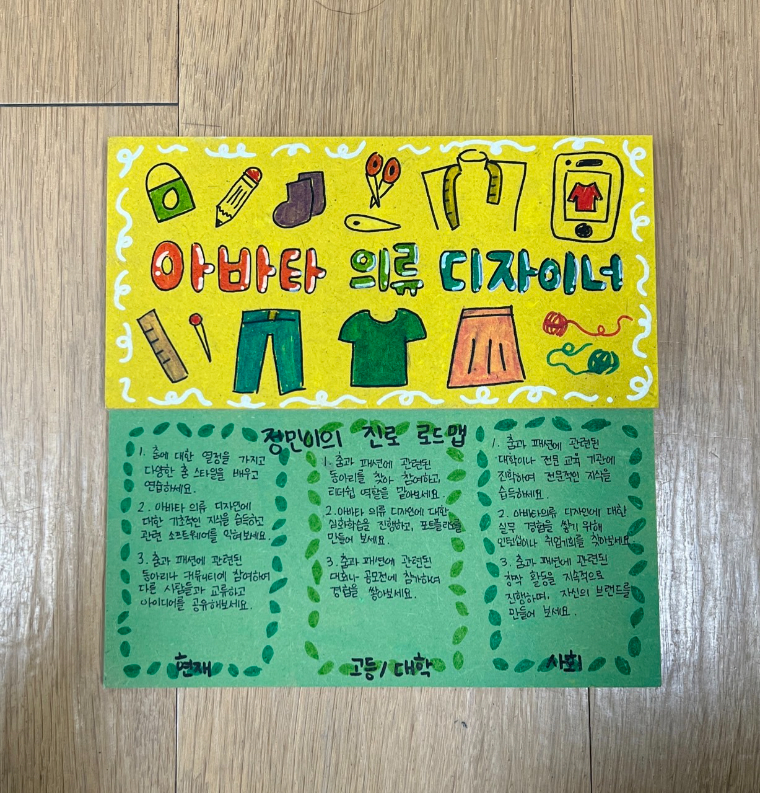 아바타 의류 디자이너
정민이의 진로 로드맵
1. 춤에 대한 열정을 가지고
다양한 춤 스타일을 배우고
연습하세요.
2. 아바타 의류 디자인에
대한 기초적인 지식을 습득하고
관련 소프트웨어를 익혀보세요.
3. 춤과 패션에 관련된
동아리나 커뮤니티에 참여하여
다른 사람들과 교류하고
아이디어를 공유해보세요.
현재
1. 춤과 패션에 관련된
동아리를 찾아 참여하고,
리더쉽 역할을 맡아보세요.
2. 아바타 의류 디자인에 대한
심화학습을 진행하고, 포트폴리오를
만들어 보세요.
3. 춤과 패션에 관련된
대회나 공모전에 참가하여
경험을 쌓아보세요.
고등/대학
1. 춤과 패션에 관련된
대학이나 전문 교육 기관에
진학하여 전문적인 지식을
습득하세요.
2. 아바타의류 디자인에 대한
실무 경험을 쌓기 위해
인턴십이나 취업기회를 찾아보세요.
3. 춤과 패션에 관련된
창작 활동을 지속적으로
진행하며, 자신의 브랜드를
만들어 보세요.
사회